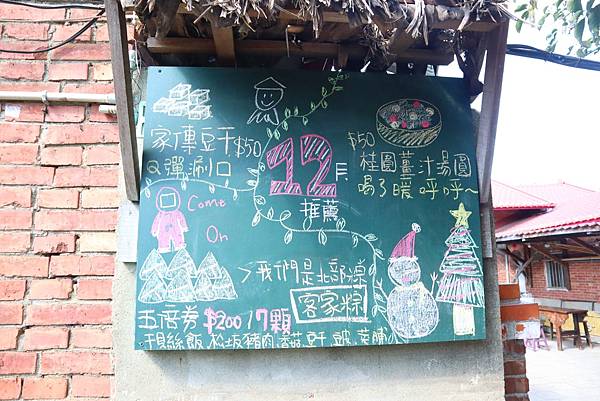 家傳豆干$50
Q彈涮口
12月
推薦
$50
桂園薑汁湯圓
喝了暖呼呼~
Come
On
>我們是北部粽
客家粽
五倍券 $200/7顆
干貝絲飯,松坂豬肉,香菇,豆干,豆皮,菜脯